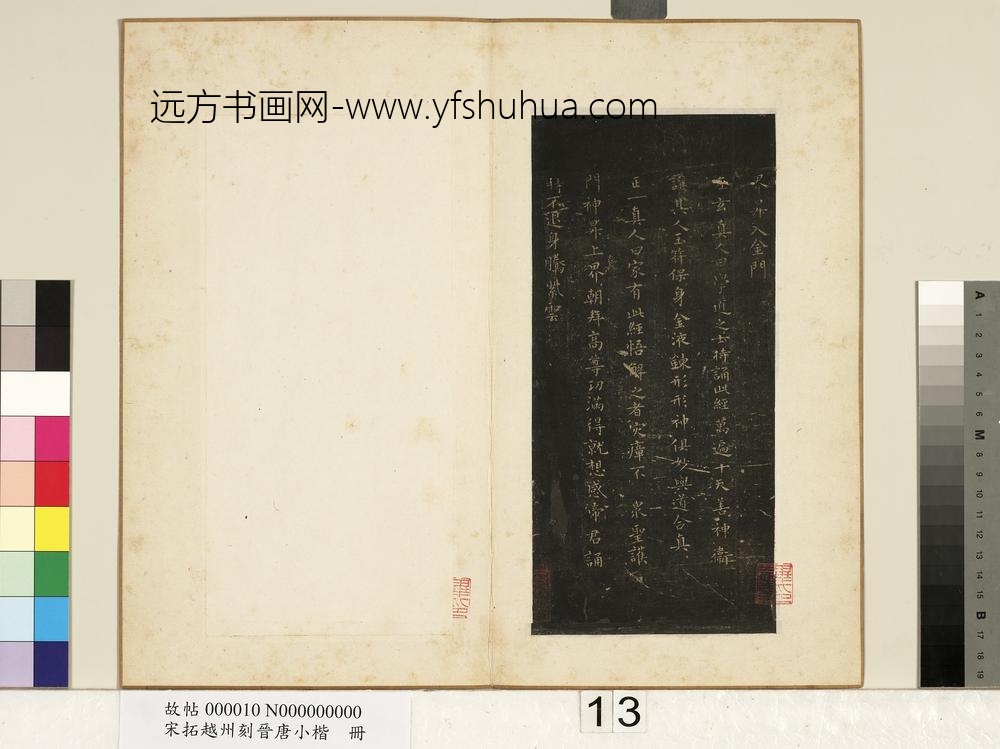 远方书画网-www.yfshuhua.com
入金門
玄真人曰學道之士持誦此經萬遍十天善神衛
護其人玉符保身金液鍊形形神俱妙與道合真
正一真人曰家有此經悟解之者灾瘴不 衆聖護
門神昇上界朝拜高尊功滿得就想感帝君誦
持不退身騰紫雲
故帖 000010 N000000000
宋拓越州刻晉唐小楷 冊
13
A 1 2 3 4 5 6 M 8 9 10 11 12 13 14 15 B 17 18 19